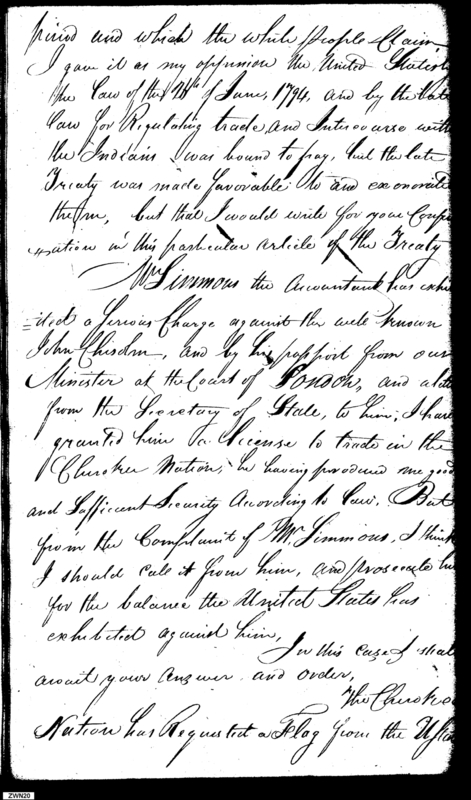 period and which the white people Claim
I gave it as my oppinion the United States
the Law of the 24th of June, 1794, and by the late
Law for Regulating trade, and Intercourse with
the Indians was bound to pay, but the late
Treaty was made favorable to and exonorate
them, but that I would write for your
in this particular article of the Treaty
Mr Simmons the Accountant has exhi
=ited a Serious Charge against the well known
John Chisolm, and by his passport from our
Minister at the Court of London, and a
from the Secretary of State, to him, I have
granted him a License to trade in the
Cherokee Nation, he having produced me good
and Sufficient Security According to Law. But
from the Complaint of Mr. Simmons, I think
I should call it from him, and prosecute
for the balance the United States has
exhibited against him,
In this case I shall
await your answer and order,
The Cherokee
Nation has Requested a Flag from the
ZWN20